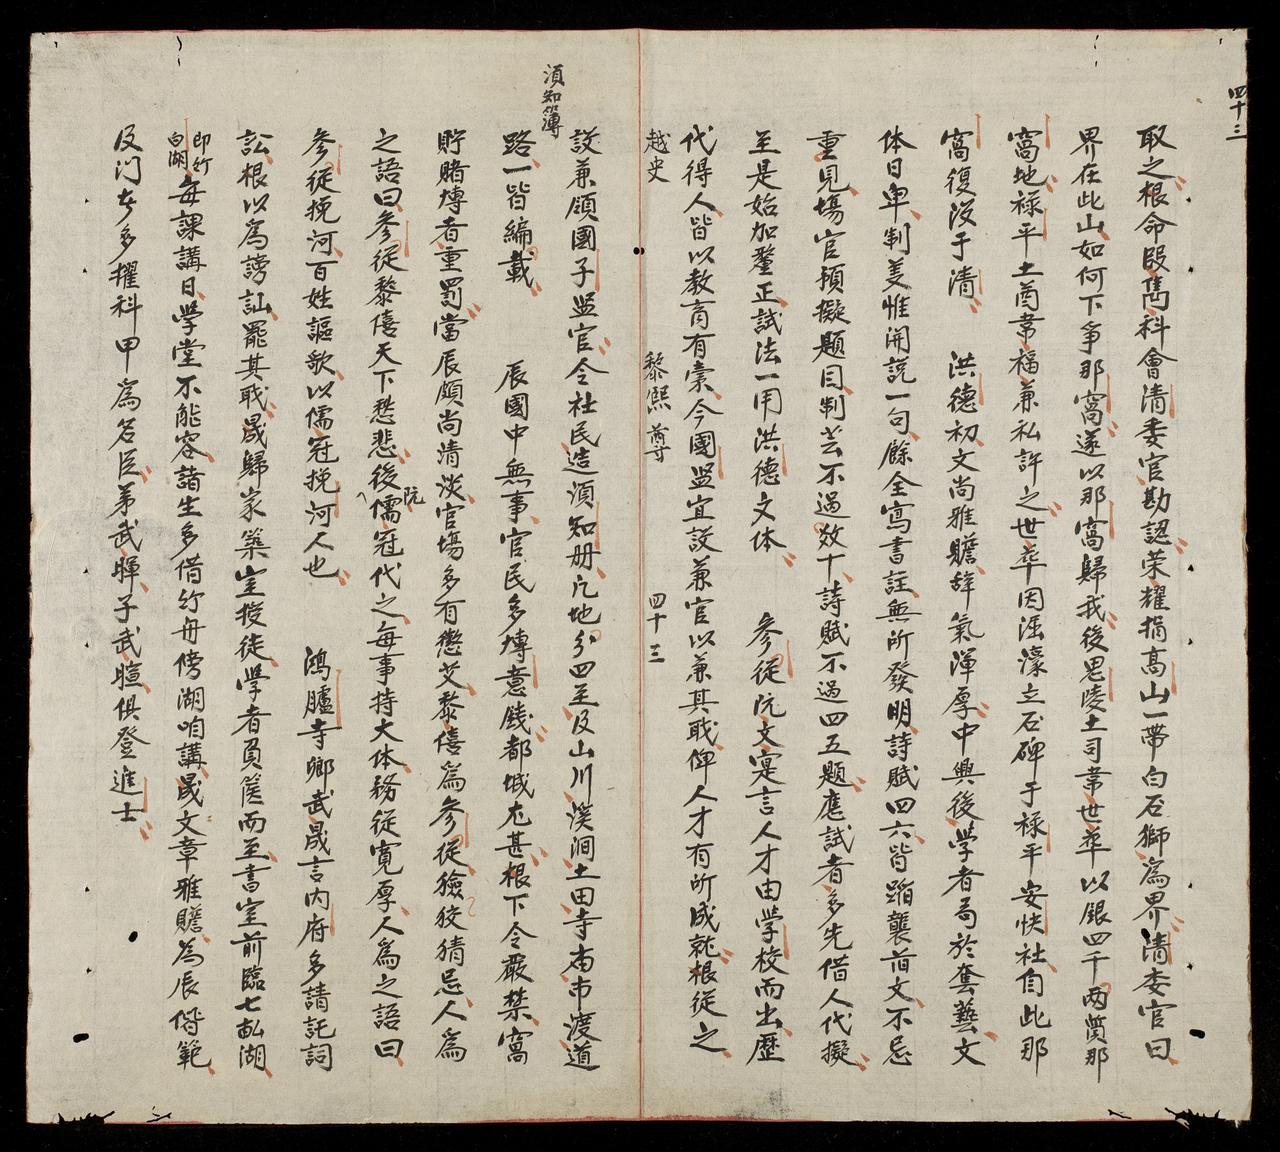 四十三
取之根命段雋科會清委官勘認荣耀指高山一帶白石獅為界清委官曰
界在此山如何下爭那窩遂以那窩歸我後思陵土司韋世華以銀四千两賞那
窩地禄平土酋韋福兼私許之世華因洭濠立石碑于禄平安快社自此那
窩復没于清 洪德初文尚雅贍辞氣渾厚中興後學者局於套藝文
体日卑制美惟開說一句餘全寫書註無所發明詩賦四六皆蹈襲前文不忌
重見場官預擬題目制芸不過数十詩賦不過四五題應試者多先借人代擬
至是始加釐正試法一用洪德文体 參從阮文寔言人才由學校而出歷
代得人皆以教育有素今國监宜設兼官以兼其職俾人才有所成就根從之
越史 黎熙尊 四十三
須知簿
設兼領國子监官令社民造須知册凡地分四至及山川溪澗土田寺庙市渡道
路一皆編載 辰國中無事官民多愽意錢都城尤甚根下令嚴禁窩
貯賭愽者重罰當辰頗尚清淡官場多有懲艾黎僖為參從獫狡猜忌人為
之語曰參從黎僖天下愁悲後阮儒冠代之每事持大体務從寬厚人為之語曰
參從挽河百姓謳歌以儒冠挽河人也 鴻臚寺鄉武晟言内府多請託詞
訟根以為謗訕罷其職晟歸家築室授徒學者負笈而至書室前臨七畝湖
即竹白湖每課講日學堂不能容諸生多借竹舟傍湖咱講晟文章雅贍為辰階範
及门士多擢科甲為名臣弟武暉子武暄俱登進士